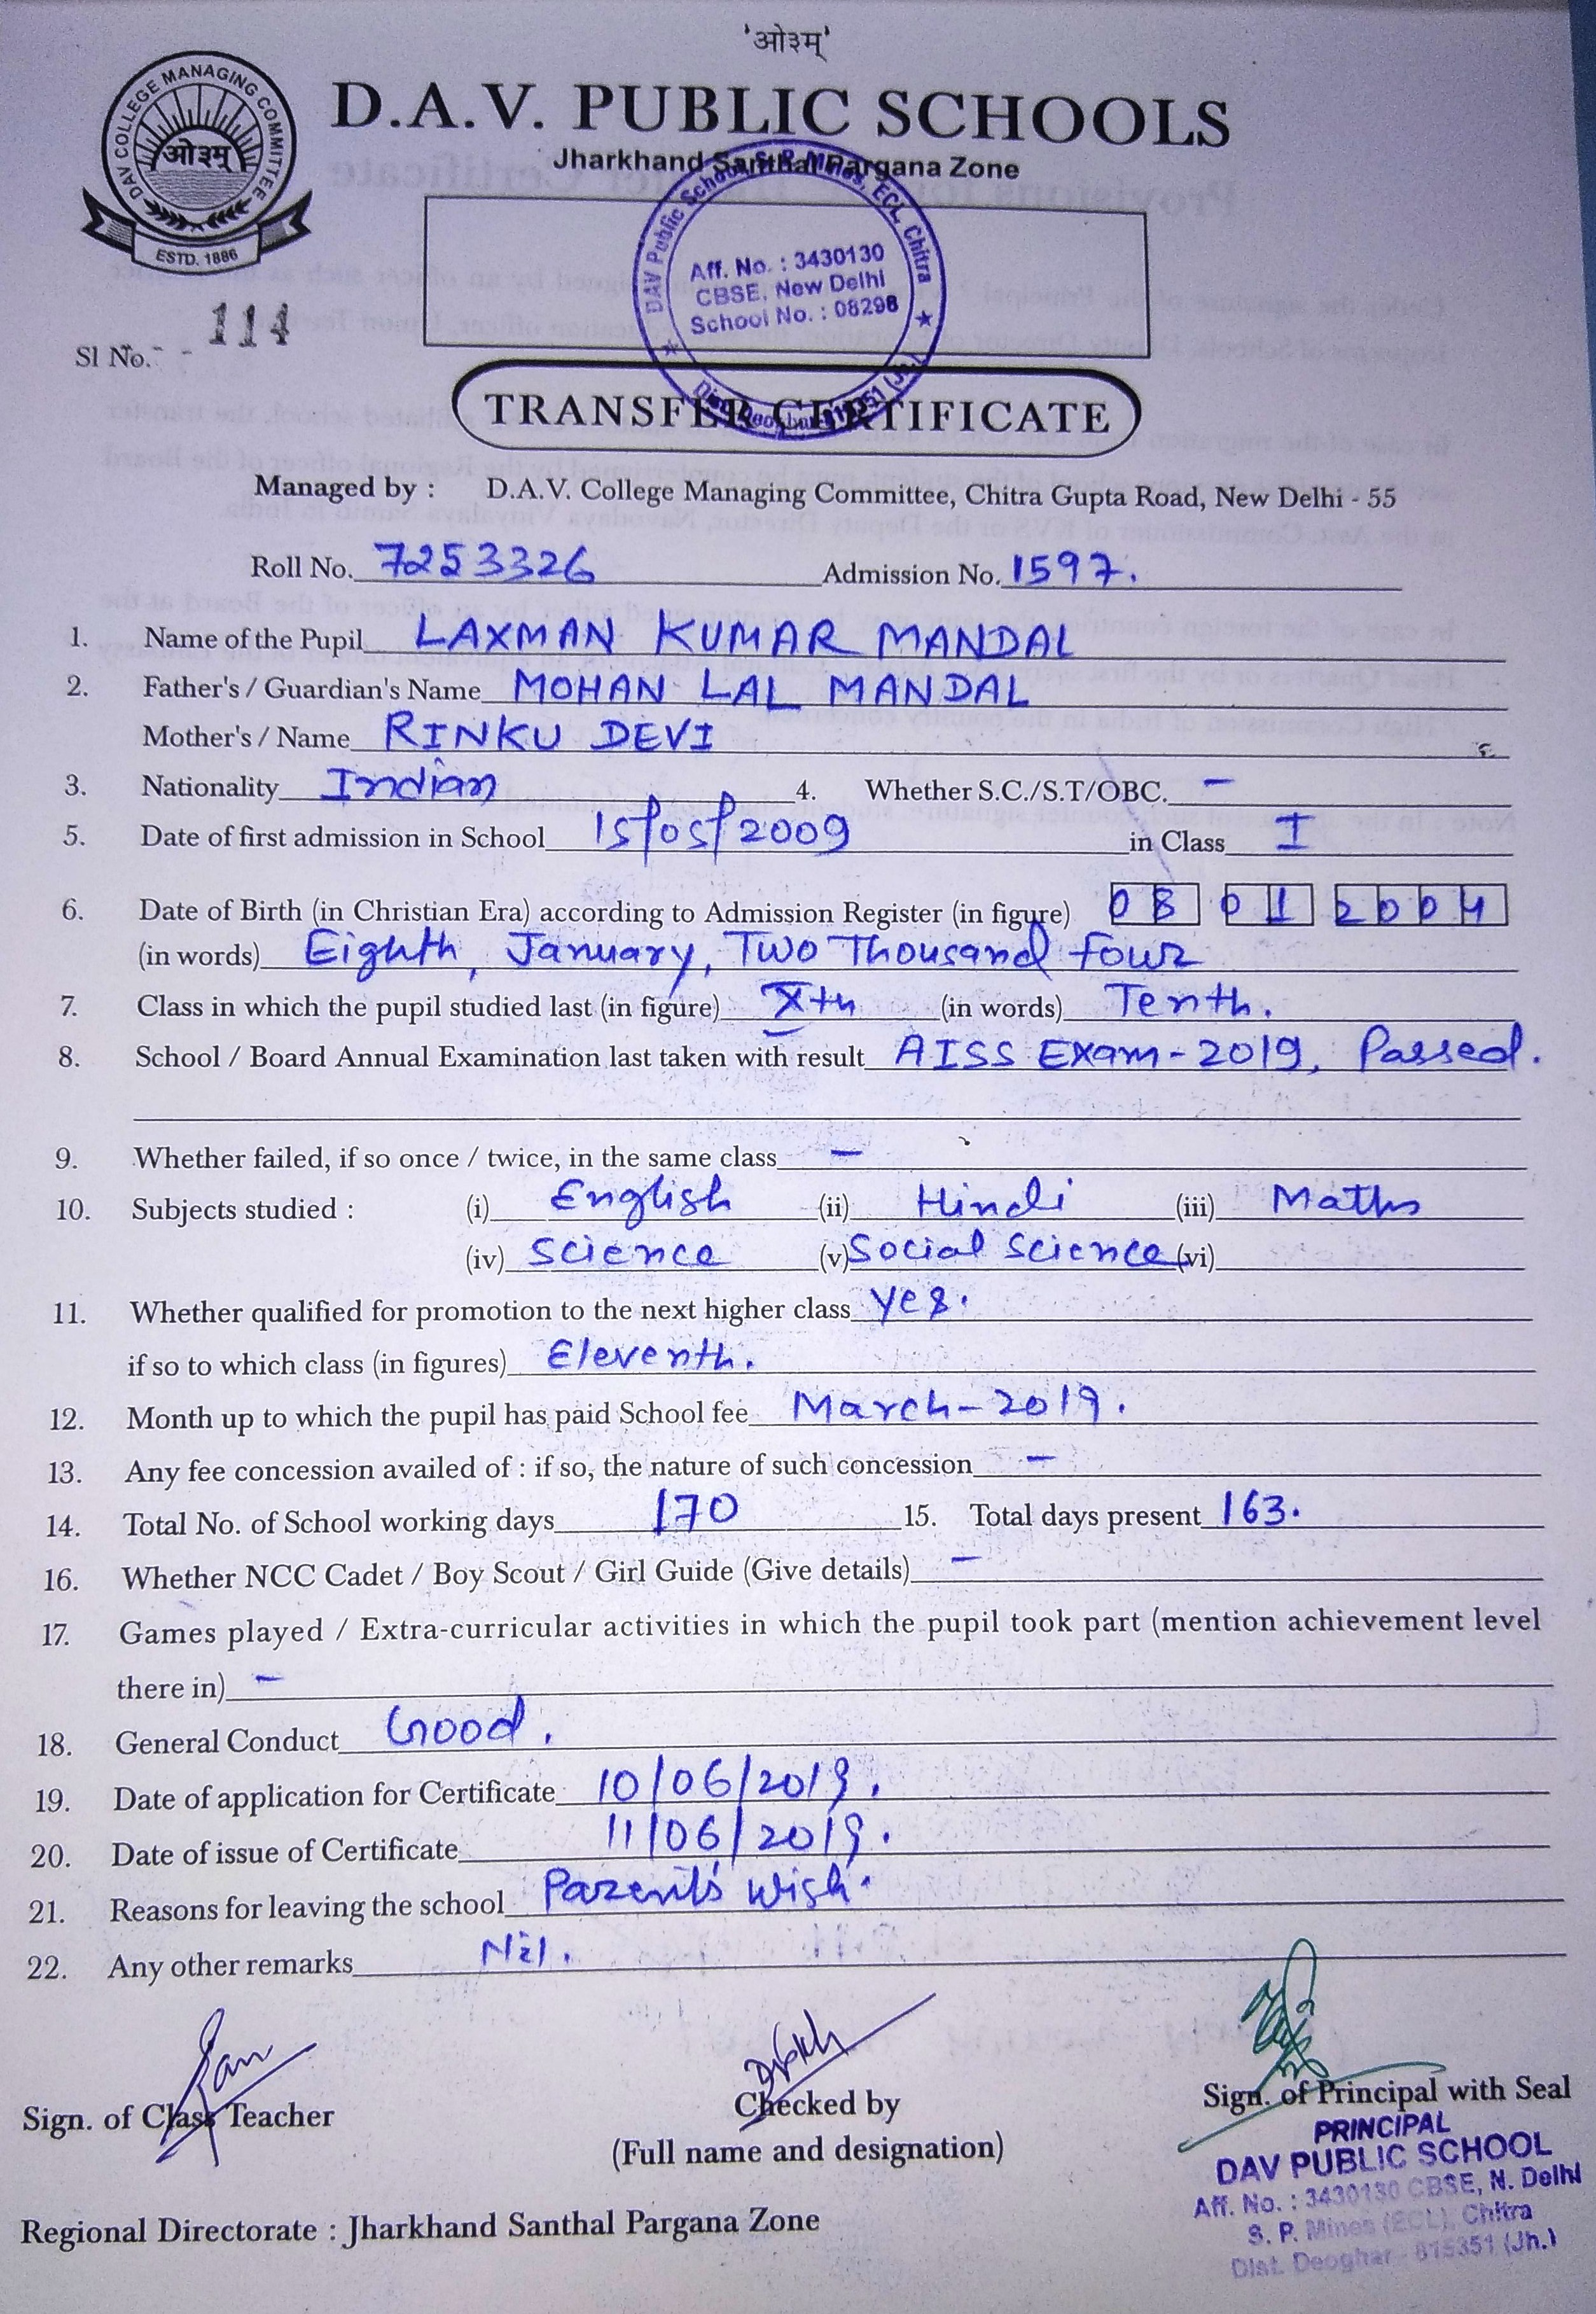 'ओ३म्'
DAV COLLEGE MANAGING COMMITTEE
ओ३म्
ESTD. 1886
D.A.V. PUBLIC SCHOOLS
Jharkhand Santhal Pargana Zone
DAV Public School, S. P. Mines, ECL, Chitra
Aff. No. : 3430130
CBSE, New Delhi
School No. : 08298
Dist. Deoghar 815351 (Jh.)
Sl No. 114
TRANSFER CERTIFICATE
Managed by : D.A.V. College Managing Committee, Chitra Gupta Road, New Delhi - 55
Roll No. 7253326 Admission No. 1597.
1. Name of the Pupil LAXMAN KUMAR MANDAL
2. Father's / Guardian's Name MOHAN LAL MANDAL
Mother's / Name RINKU DEVI
3. Nationality Indian 4. Whether S.C./S.T/OBC. -
5. Date of first admission in School 15/05/2009 in Class I
6. Date of Birth (in Christian Era) according to Admission Register (in figure) 08 01 2004
(in words) Eighth, January, Two Thousand four
7. Class in which the pupil studied last (in figure) Xth (in words) Tenth.
8. School / Board Annual Examination last taken with result AISS Exam-2019, Passed.
9. Whether failed, if so once / twice, in the same class -
10. Subjects studied : (i) English (ii) Hindi (iii) Maths
(iv) Science (v) Social Science (vi)
11. Whether qualified for promotion to the next higher class yes.
if so to which class (in figures) Eleventh.
12. Month up to which the pupil has paid School fee March-2019.
13. Any fee concession availed of : if so, the nature of such concession -
14. Total No. of School working days 170 15. Total days present 163.
16. Whether NCC Cadet / Boy Scout / Girl Guide (Give details) -
17. Games played / Extra-curricular activities in which the pupil took part (mention achievement level
there in) -
18. General Conduct Good.
19. Date of application for Certificate 10/06/2019.
20. Date of issue of Certificate 11/06/2019.
21. Reasons for leaving the school Parent's wish.
22. Any other remarks Nil.
Sign. of Class Teacher
Checked by
(Full name and designation)
Sign. of Principal with Seal
PRINCIPAL
DAV PUBLIC SCHOOL
Aff. No. : 3430130 CBSE, N. Delhi
S. P. Mines (ECL), Chitra
Dist. Deoghar - 815351 (Jh.)
Regional Directorate : Jharkhand Santhal Pargana Zone